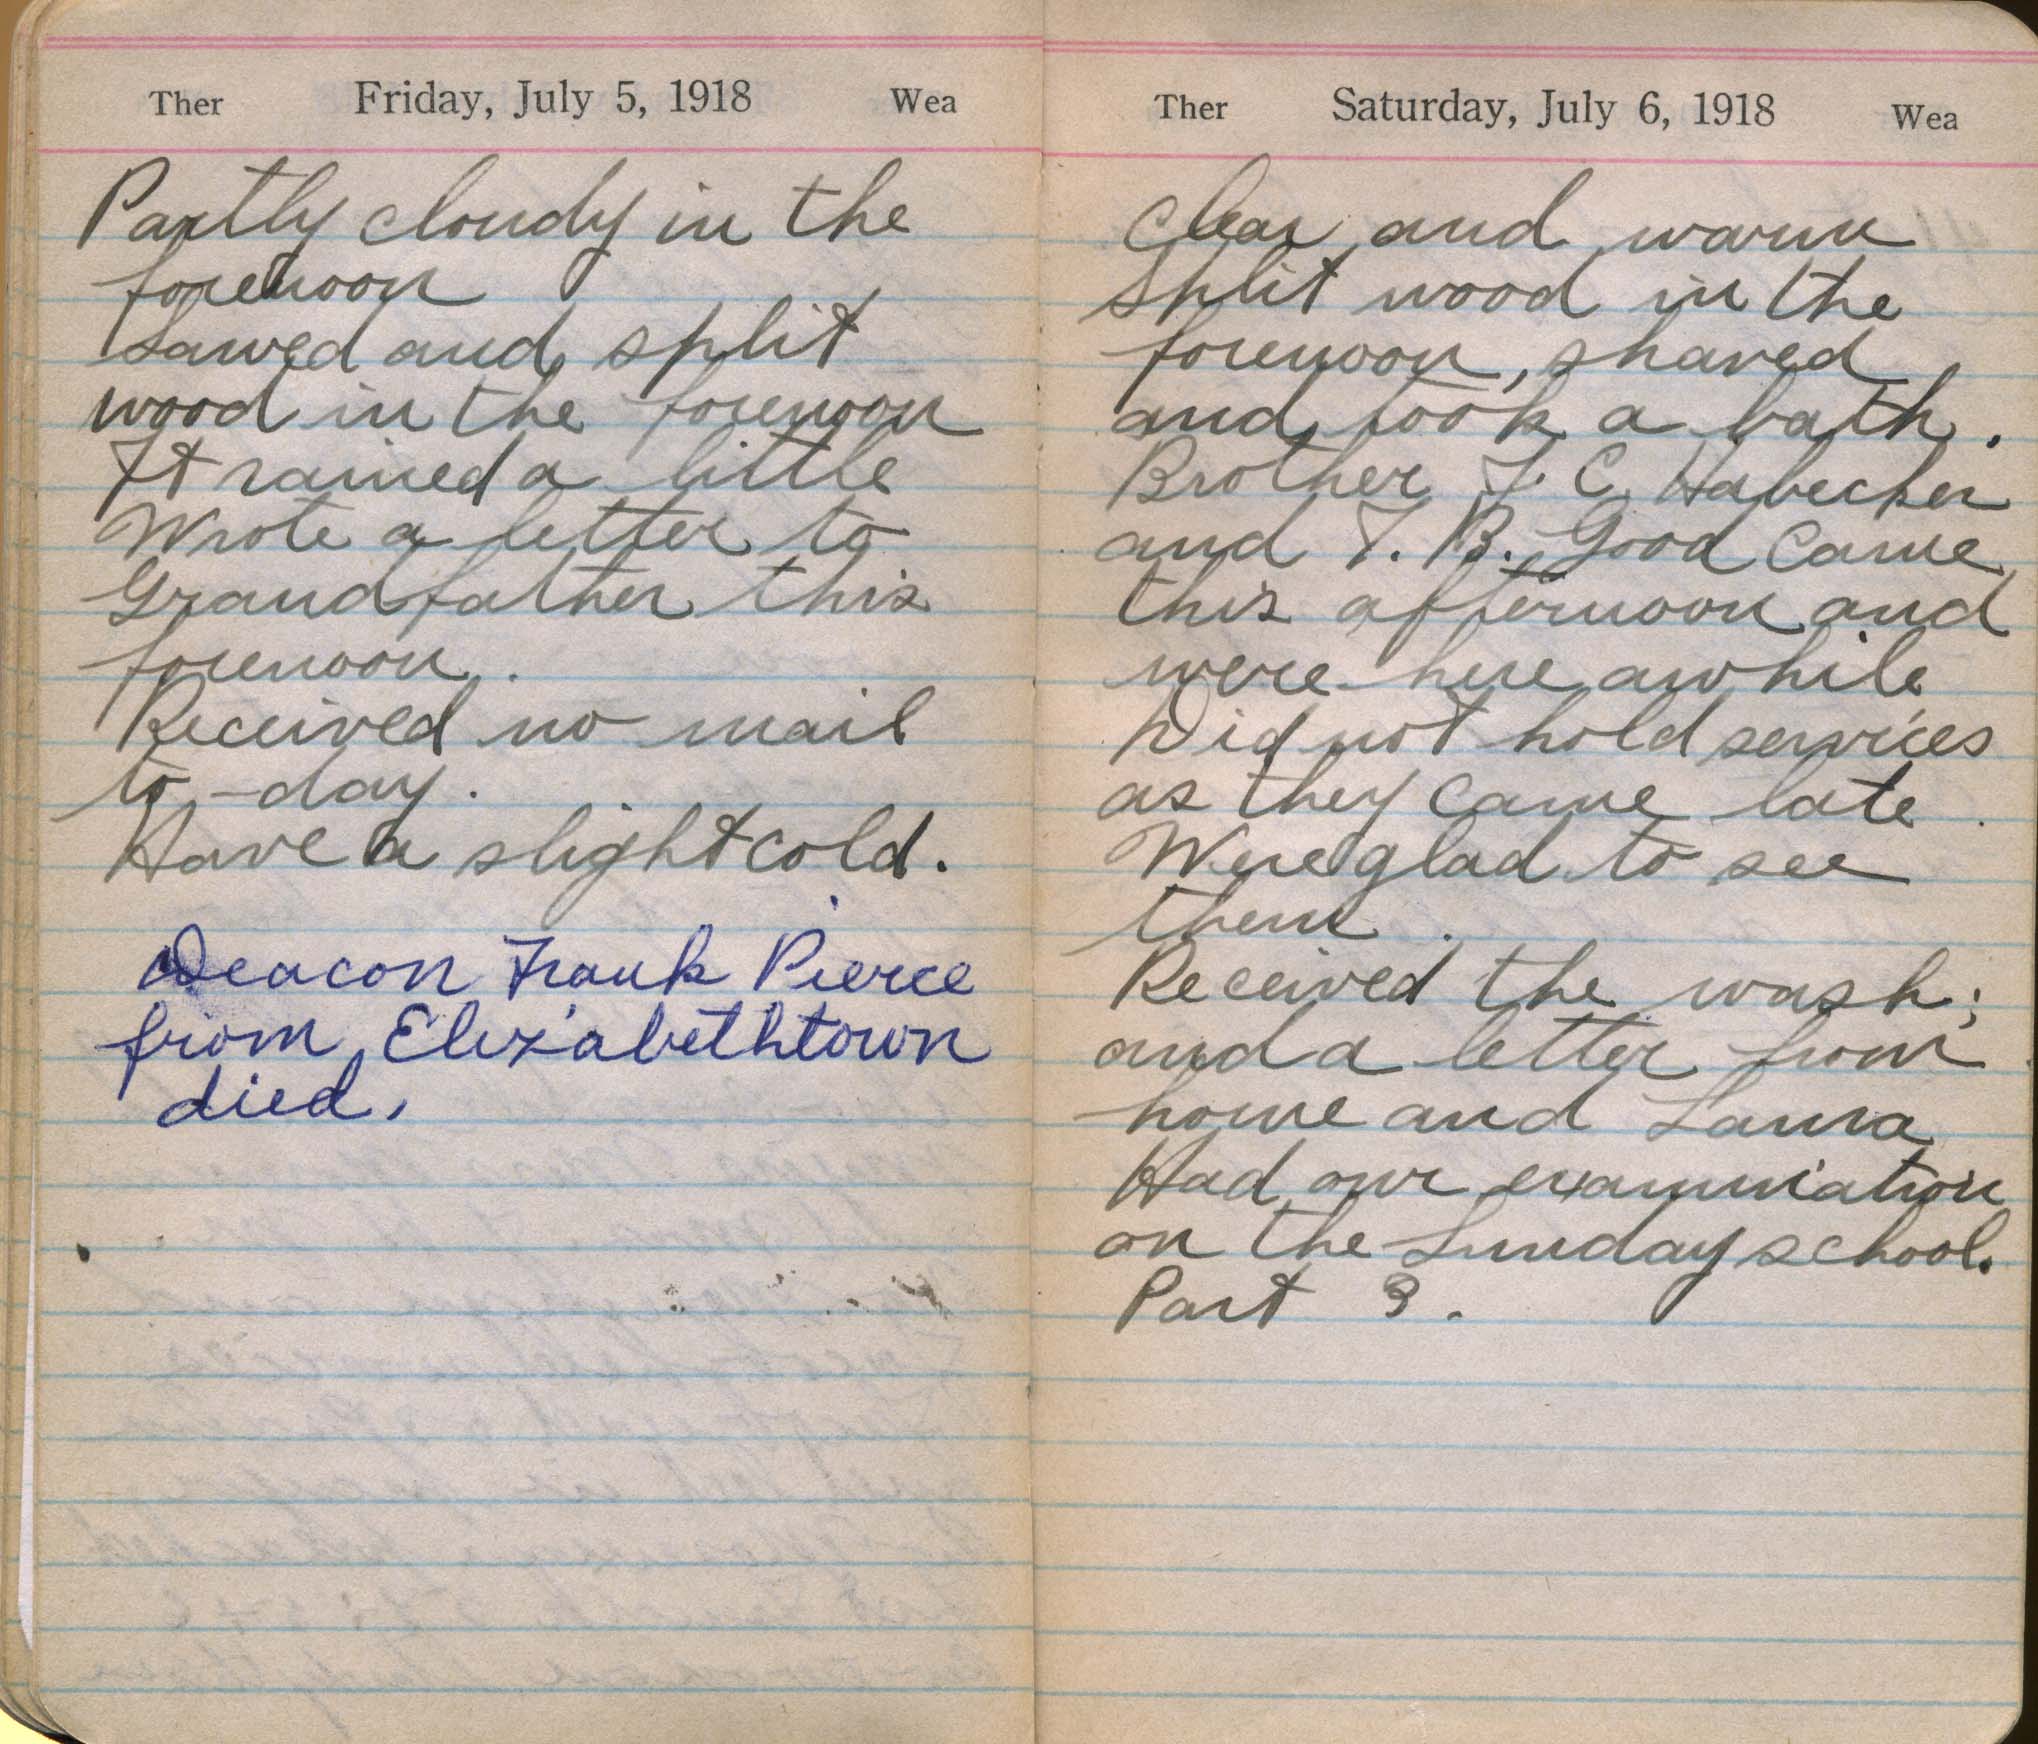 Ther Friday, July 5, 1918 Wea
Partly cloudy in the
forenoon
Sawed and split
wood in the forenoon
It rained a little
Wrote a letter to
Grandfather this
forenoon.
Received no mail
to-day.
Have a slight cold.
Deacon Frank Pierce
from Elizabethtown
died.
Ther Saturday, July 6, 1918 Wea
Clear and warm
Split wood in the
forenoon, shaved
and took a bath.
Brother J. C. Habecker
and T. B. Good came
this afternoon and
were here awhile
Did not hold services
as they came late.
Were glad to see
them.
Received the wash;
and a letter from
home and Laura
Had our examination
on the Sunday school.
Part 3.